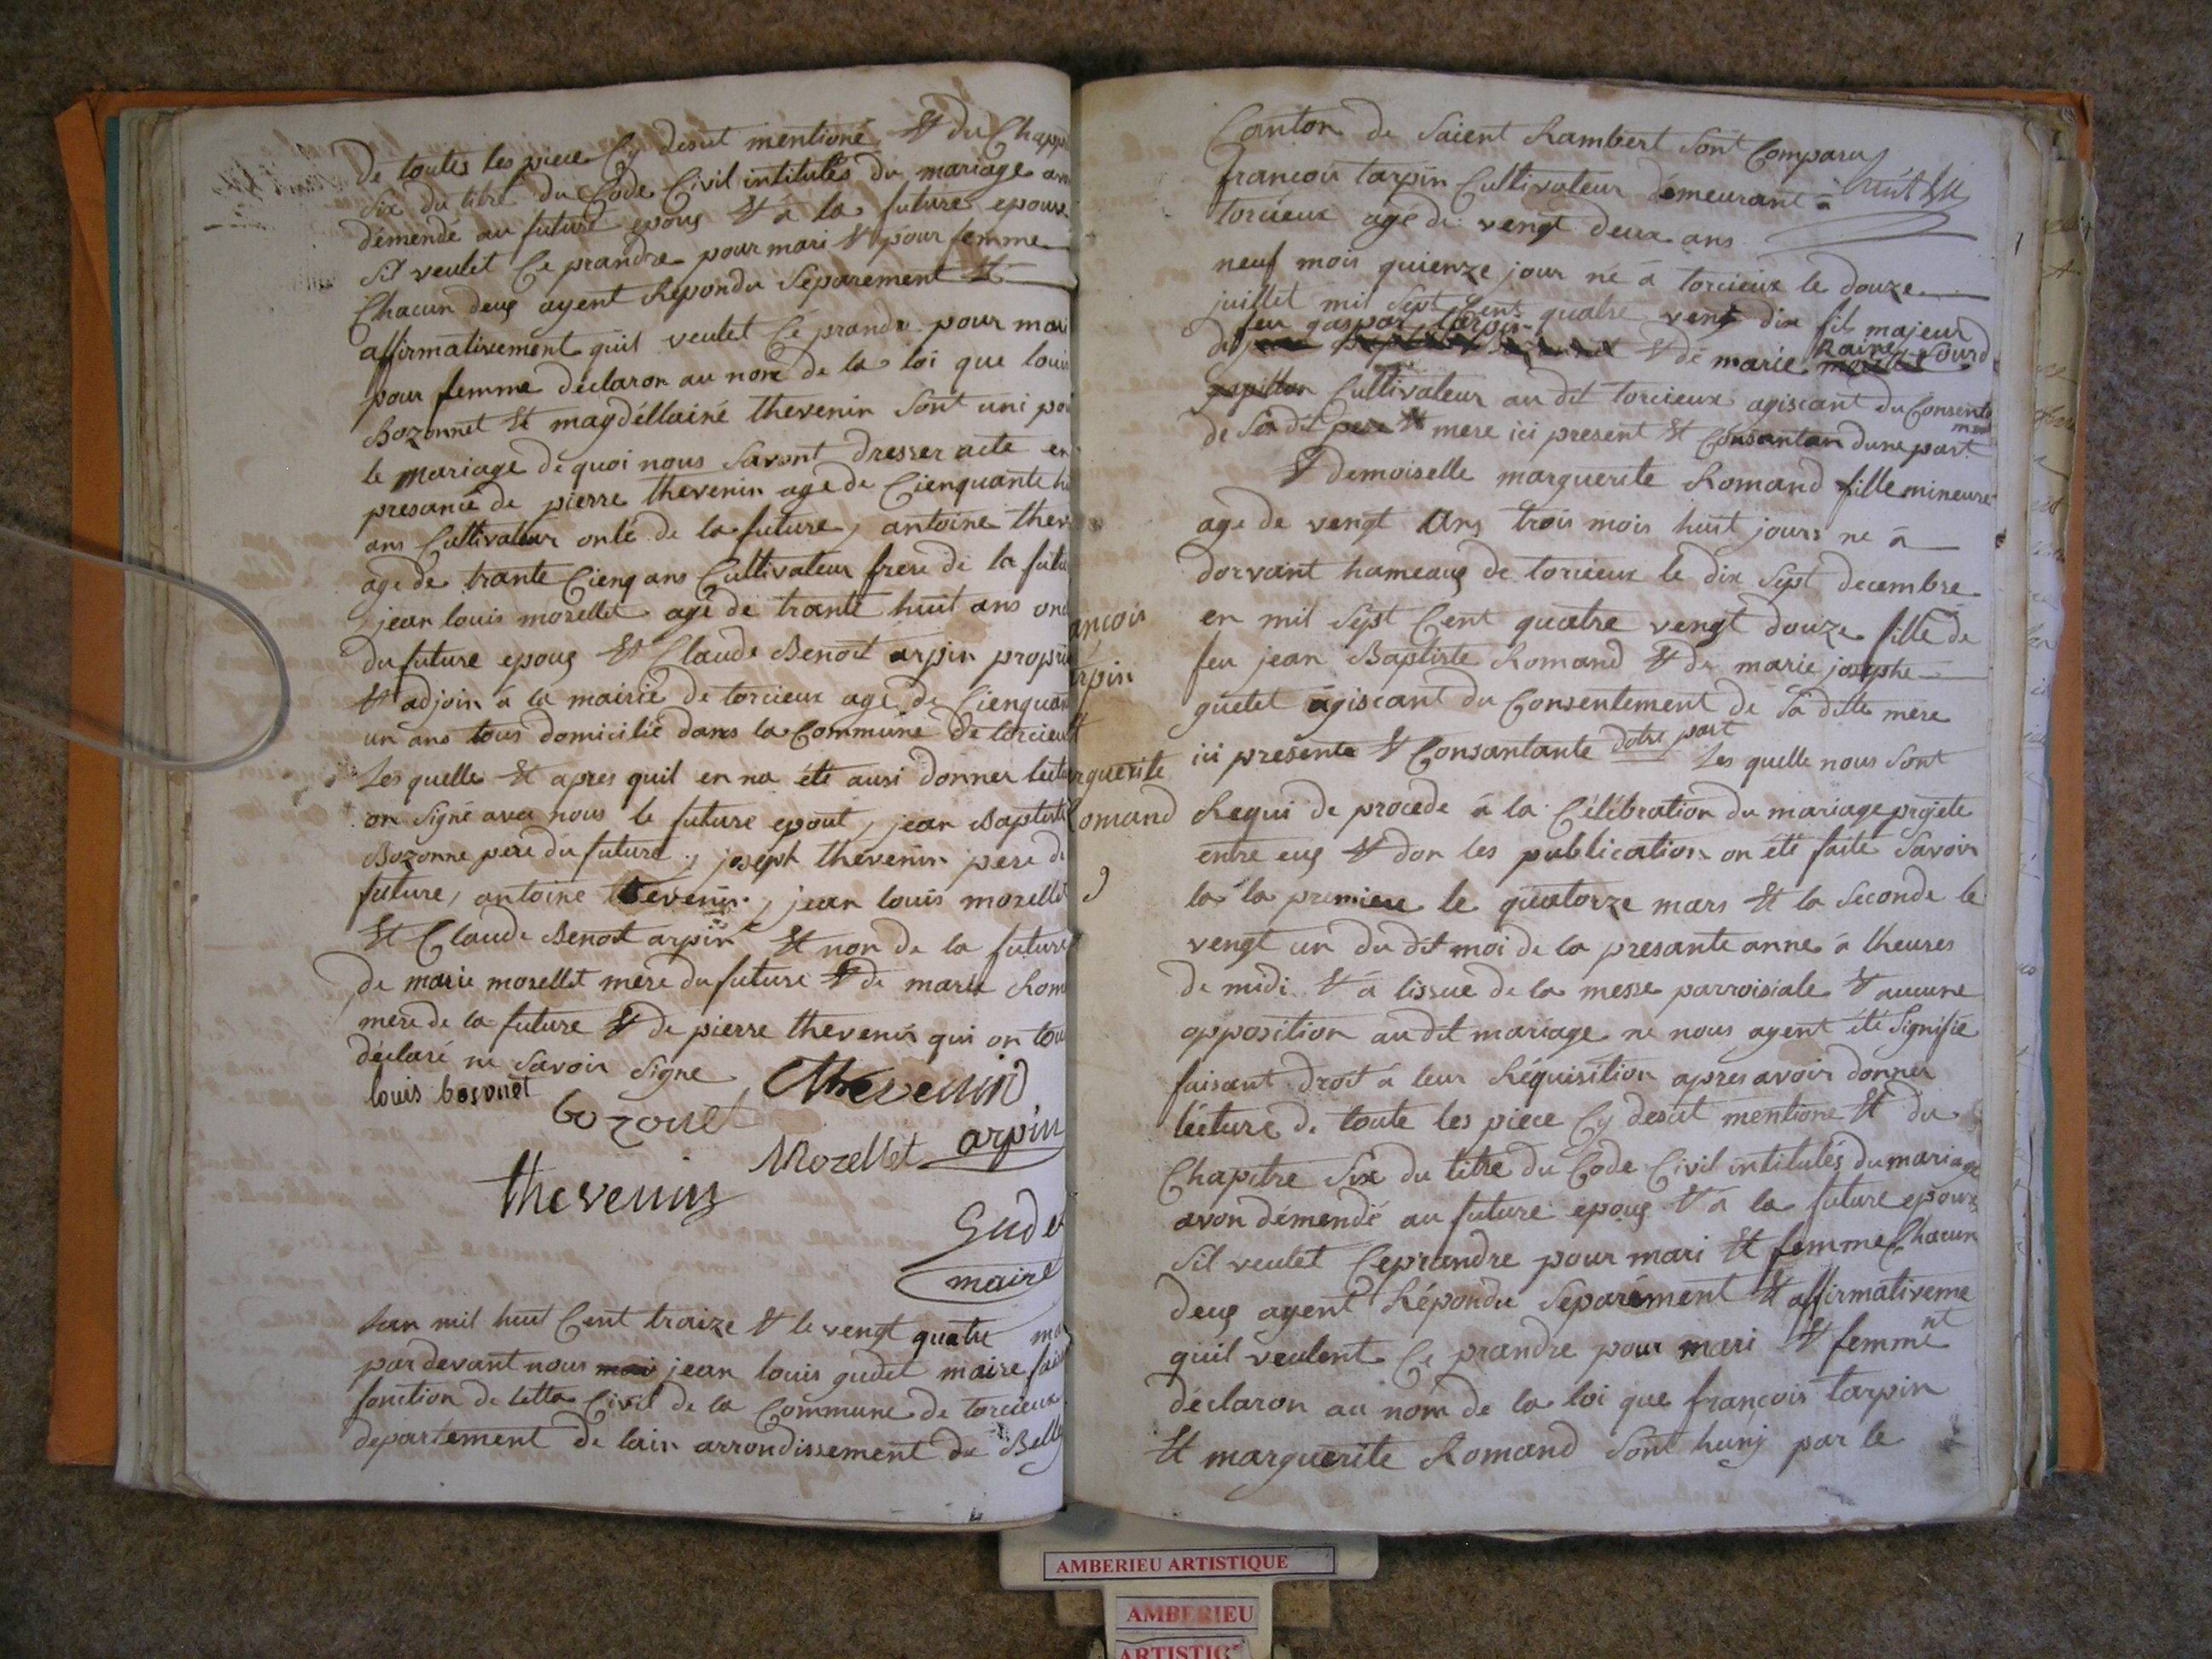 De toutes les piece Cy desut mentioné Et du Chapp
Six du titre du Code Civil intitulés du mariage avo
démendé au future epoug Et à la future epouse
Sil veulet Ce prandre pour mari Et pour femme
Chacun deug ayent Repondu Séparement Et
affirmativement quil veulet Cé prandre pour mari
pour femme déclaron au nom de la loi que louis
Bozonnet Et magdéllainé thevenin Sont uni par
le mariage de quoi nous Savont dresser acte en
presance de pierre thevenin age de Cienquante hu
ans Cultivateur oncle de la future, antoine theve
age de trante Cienq ans Cultivateur frere de la futu
jean louis mozellet agé de trante huit ans onc
du future epoug Et Claude Benoit arpin proprie
Et adjoin à la mairie de torcieux agé de Cienquan
un ans tous domicilie dans la Commune de torcieux
Les quelle Et apres quil en na été ausi donner lectu
on Signé avec nous le future epout, jean Baptiste
Bozonne pere du future, joseph thévenin pere de
future, antoine thevenin, jean louis mozellet
Et Claude Benoit arpin Et non de la future
de marie mozellet mere du future Et de marie Rom
mere de la future Et de pierre thevenin qui on tous
déclaré ne Savoir Signe
louis bosonet
bozonet
thevenin
Mozellet arpin
thevenin
Gudet
maire
Lan mil huit Cent traize Et le vengt quatre ma
par devant nous jean louis gudet maire fais
fonction de Letta Civil de la Commune de torcieux
departement de lain arrondissement de Belle
Canton de Saient Rambert Sont Comparu
françois tarpin Cultivateur démeurant à
torcieux agé de vengt deux ans
neuf mois quienze jour né à torcieux le douze
juillet mil Sept Cent quatre vengt dix fils majeur
feu gaspar tarpin
de Et de marie Raine Sourd
Cultivateur au dit torcieux agiscant du Consente
ment
de Sa dit mere ici present Et Consantan dune part
Et demoiselle marguerite Romand fille mineure
age de vengt Ans trois mois huit jours ne à
dorvant hameaug de torcieux le dix Sept decembre
en mil Sept Cent quatre vengt douze fille de
feu jean Baptiste Romand Et de marie josephe
guetet agiscant du Consentement de Sa dite mere
ici presente Et Consantante dotre part Les quelle nous Sont
Requi de procede à la Célébration du mariage projete
entre eug Et don les publication on été faite Savoir
la la premiere le quatorze mars Et la Seconde le
vengt un du dit moi de la presante anne à lheures
de midi Et à lissue de la messe parroisiale Et aucune
opposition au dit mariage ne nous ayent été Signifié
faisant droit à leur Réquisition apres avoir donner
lécture de toute les piece Cy desut mentione Et du
Chapitre Six du titre du Code Civil intitulés du mariage
avon démendé au future epoug Et à la future epouse
Sil veulet Ce prandre pour mari Et femme Chacun
deug ayent Répondu Separément Et affirmativeme
nt
quil veulent Ce prandre pour mari Et femme
déclaron au nom de la loi que françois tarpin
Et marguerite Romand Sont hunj par le
ançois
rpin
Et
rguerite
omand
AMBERIEU ARTISTIQUE
AMBERIEU
ARTISTIC